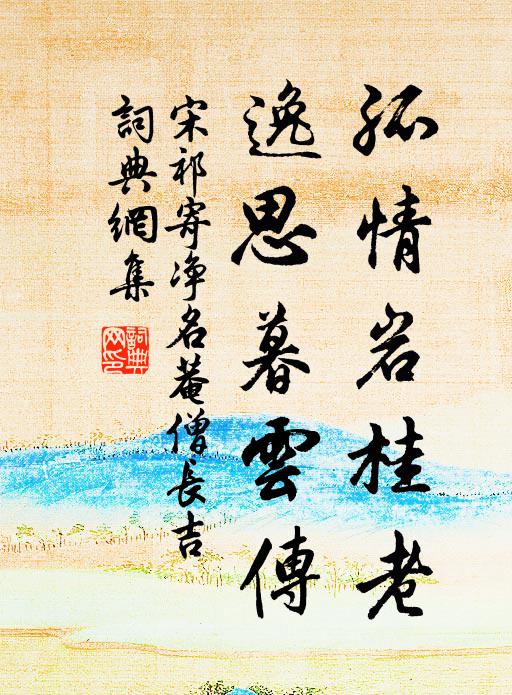 孤情岩桂老
逸思暮雲傳
宋祁寄净名菴僧長吉
詞典網集
詞典網印